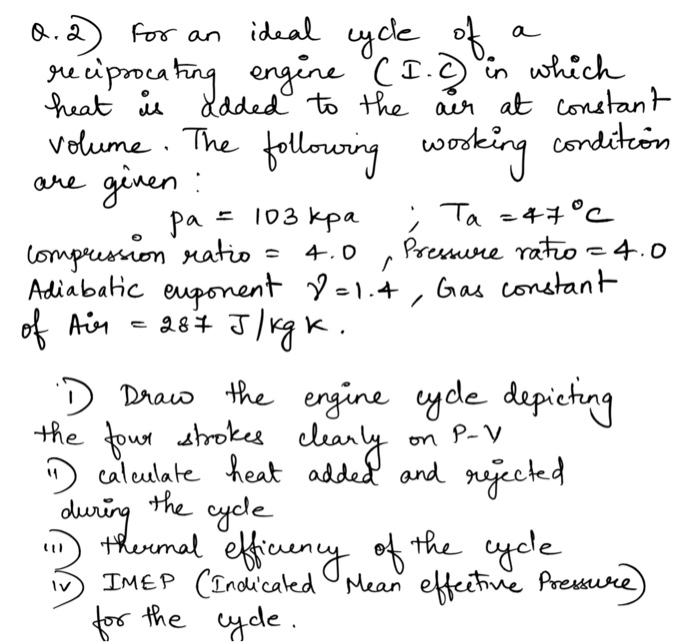 Q.2) For an ideal cycle of a
reciprocating engine (I.C) in which
heat is added to the air at constant
volume. The following working condition
are given :
pa = 103 kpa ; Ta = 47°C
Compression ratio = 4.0 , Pressure ratio = 4.0
Adiabatic euponent γ = 1.4 , Gas constant
of Air = 287 J/kg k.
i) Draw the engine cycle depicting
the four strokes clearly on P-V
ii) calculate heat added and rejected
during the cycle
iii) thermal efficiency of the cycle
iv) IMEP (Indicated Mean effective Pressure)
for the cycle.